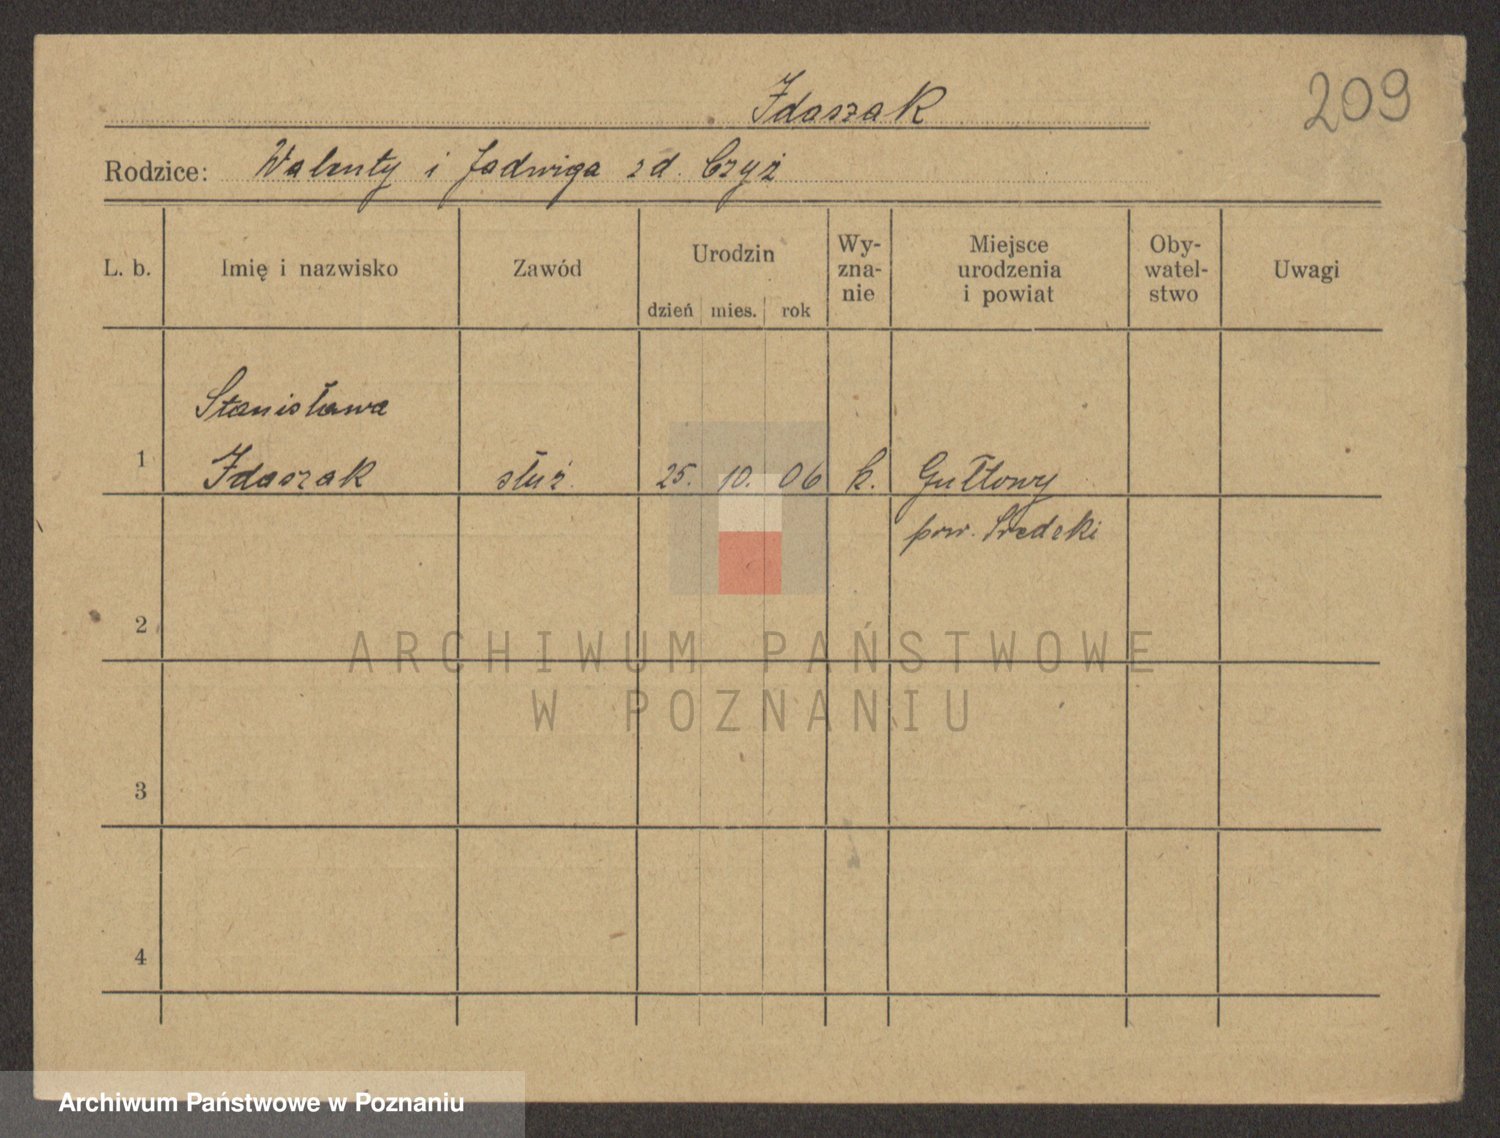 Idaszak
209
Rodzice: Walenty i Jadwiga zd. Czyż
L. b.
Imię i nazwisko
Zawód
Urodzin
dzień mies. rok
Wy-
zna-
nie
Miejsce
urodzenia
i powiat
Oby-
watel-
stwo
Uwagi
Stanisława
1 Idaszak służ. 25. 10. 06 k. Gułtowy
pow. Średzki
2
3
4
ARCHIWUM PAŃSTWOWE
W POZNANIU
Archiwum Państwowe w Poznaniu